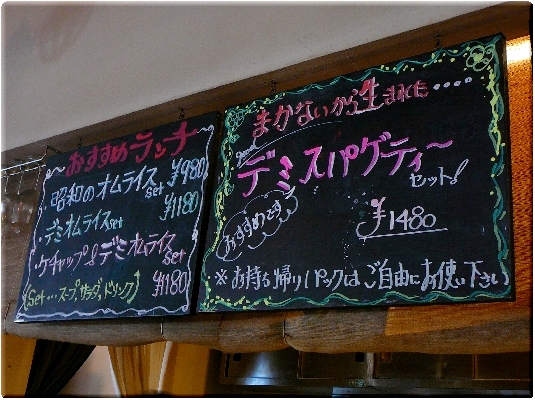 おすすめランチ
昭和のオムライスset ¥980
デミオムライスset ¥1180
ケチャップ&デミオムライスset ¥1180
(Set…スープ、サラダ、ドリンク)
まかないから生まれた‥‥
デミスパゲティ〜
セット!
おすすめです
¥1480
※お持ち帰りパックはご自由にお使い下さい